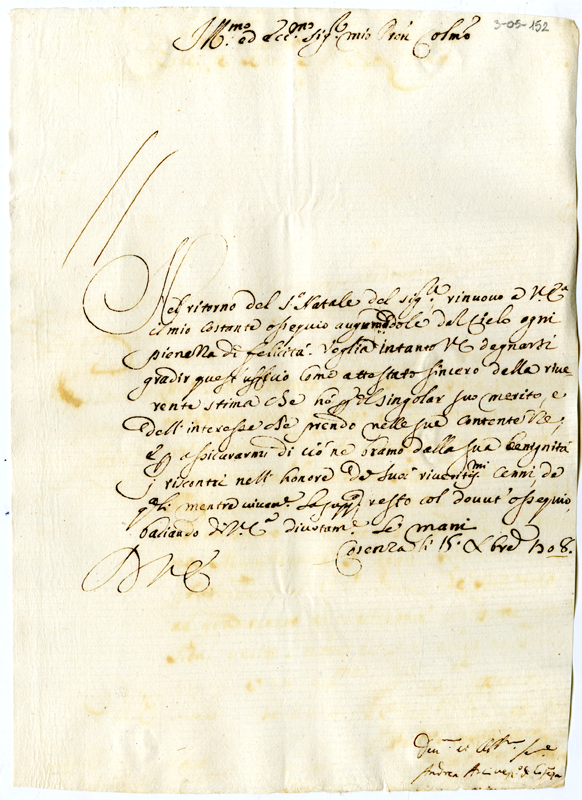 Ill.mo ed Ecc.mo Sig.r mio Pron Colmo
3-05-152
Nel ritorno del S.o Natale del Sig.re rinuovo a V.E.a
il mio costante ossequio augurandole dal Cielo ogni
pienezza di felicità. Voglia intanto V.E. degnarsi
gradir quest'ufficio come attestato sincero della rive
rente stima che hò p. il singolar suo merito, e
dell'interesse che prendo nelle sue contentezze,
E p. assicurarmi di ciò ne bramo dalla sua benignità
i riscontri nell'honore de suoi riveritis.mi cenni, de
q.li mentre vivam.e La supp.co resto col dovut'ossequio
baciando di V.E.a divotam.e le mani
Cosenza li 15. Xbre 1708.
D V E
Andrea Arcives.o di Cosenza